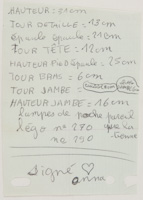 HAUTEUR = 51cm
TOUR DE TAILLE = 13cm
épaule épaule = 21cm
TOUR TÊTE = 12cm
HAUTEUR Pied épaule = 25cm
TOUR BRAS = 6cm
TOUR JAMBE =
HAUTEUR JAMBE = 16cm
lampes de poche pareil
légo n° 270 que la
n° 290
Signé ♡
anna